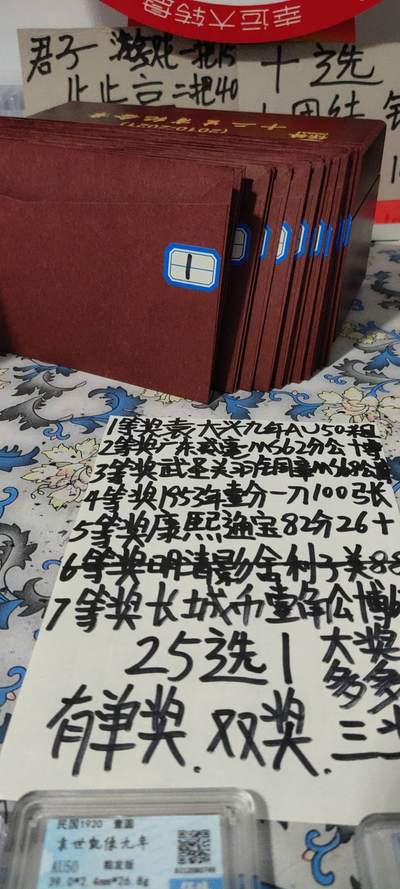 幸运大转盘
君子 游戏 一把15
止止言 二把40
十选
团结
(2010-2021)
1
1等奖袁大头九年AU50粗
2等奖广东咸丰MS62分公博
3等奖武圣关羽铜章MS68公博
4等奖1953年壹分一刀100张
5等奖康熙通宝82分26十
6等奖明清影金利子美88
7等奖长城币壹角公博6
25选1
大奖
多多
有单奖.双奖.三
民国1920 壹圆
袁世凱像九年
AU50 粗发版
39.0*2.4mm*26.8g